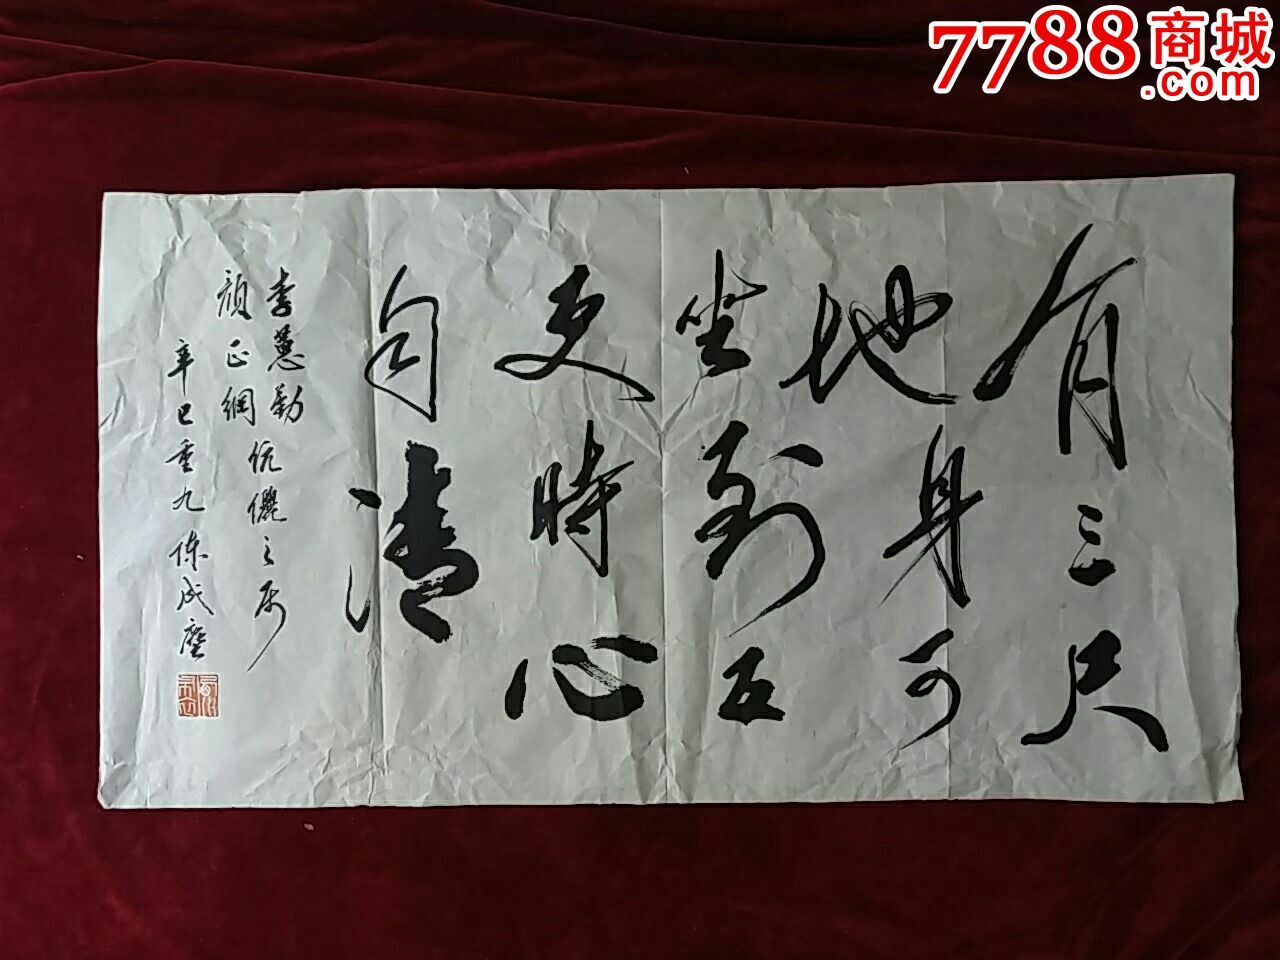 7788商城
.com
有三尺
地身可
坐到五
更時心
自清
李蕙勤 伉儷之属
顔正綱
辛巳重九 陈成